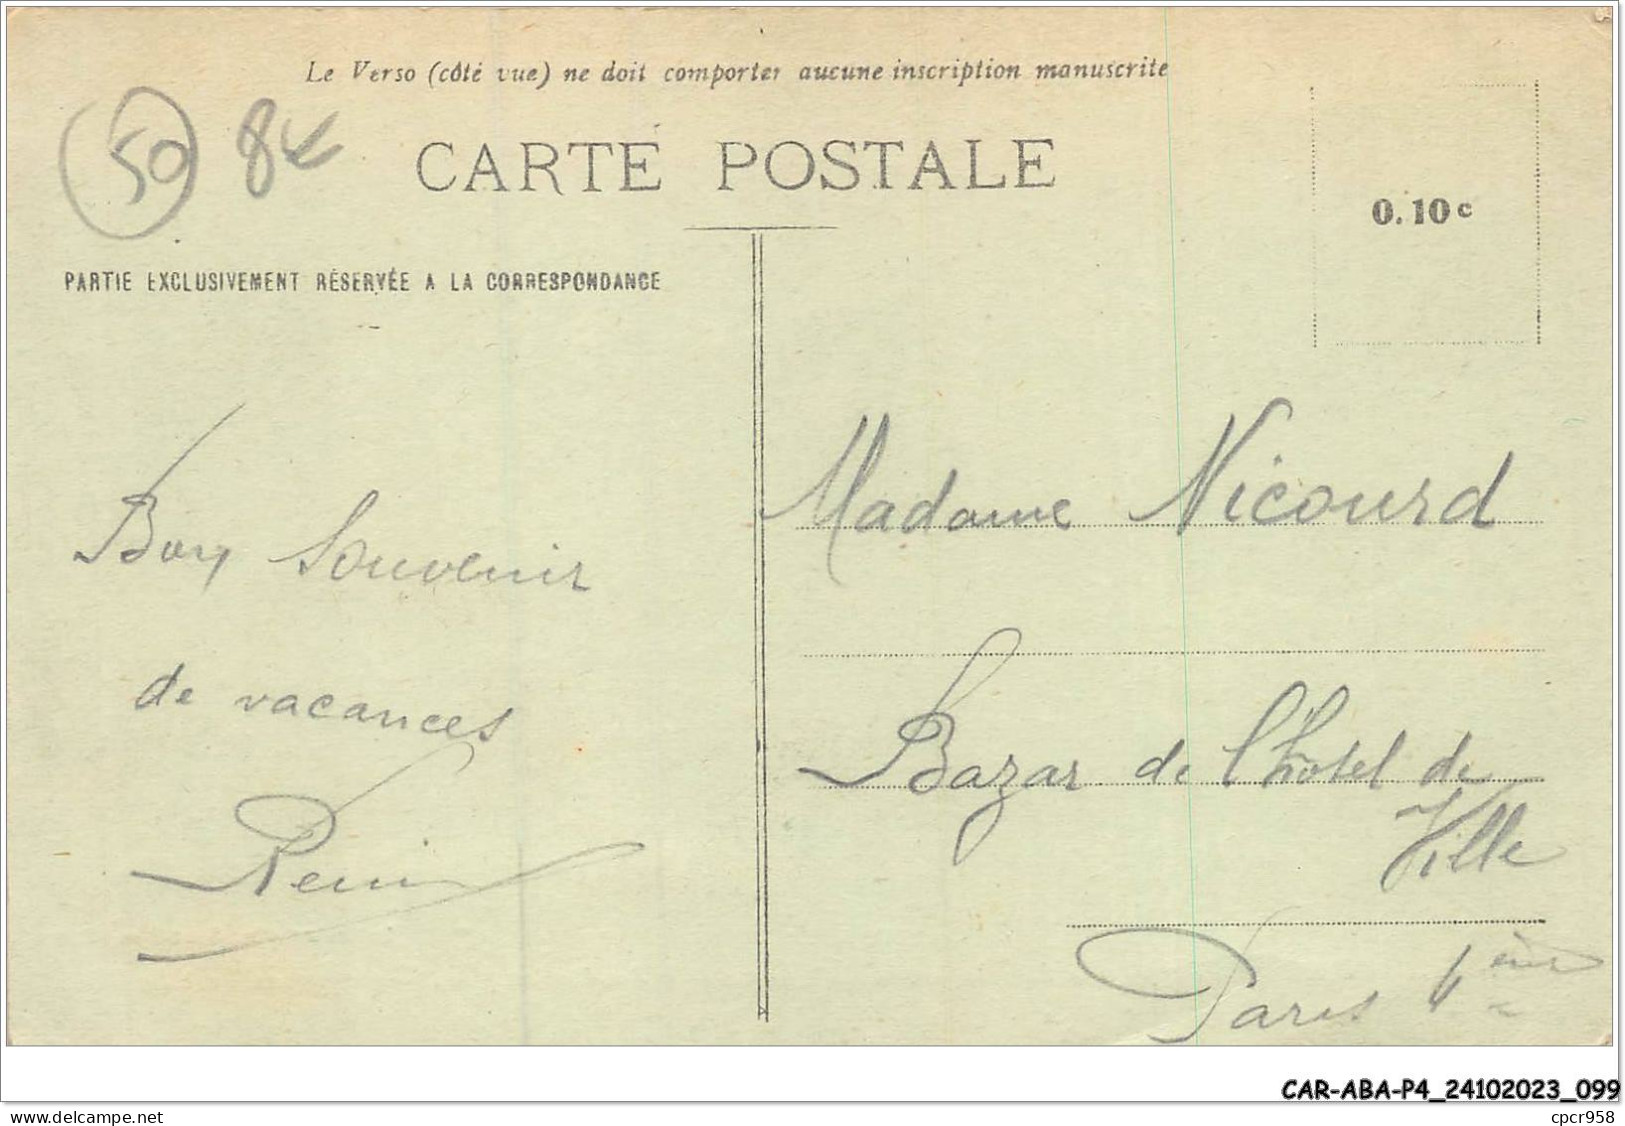 Le Verso (côté vue) ne doit comporter aucune inscription manuscrite
50 8€
CARTE POSTALE
0.10c
PARTIE EXCLUSIVEMENT RÉSERVÉE A LA CORRESPONDANCE
Bon Souvenir
de vacances
Madame Nicourd
Bazar de l'hotel de
Ville
Paris 4ème
CAR-ABA-P4_24102023_099
www.delcampe.net
cpcr958